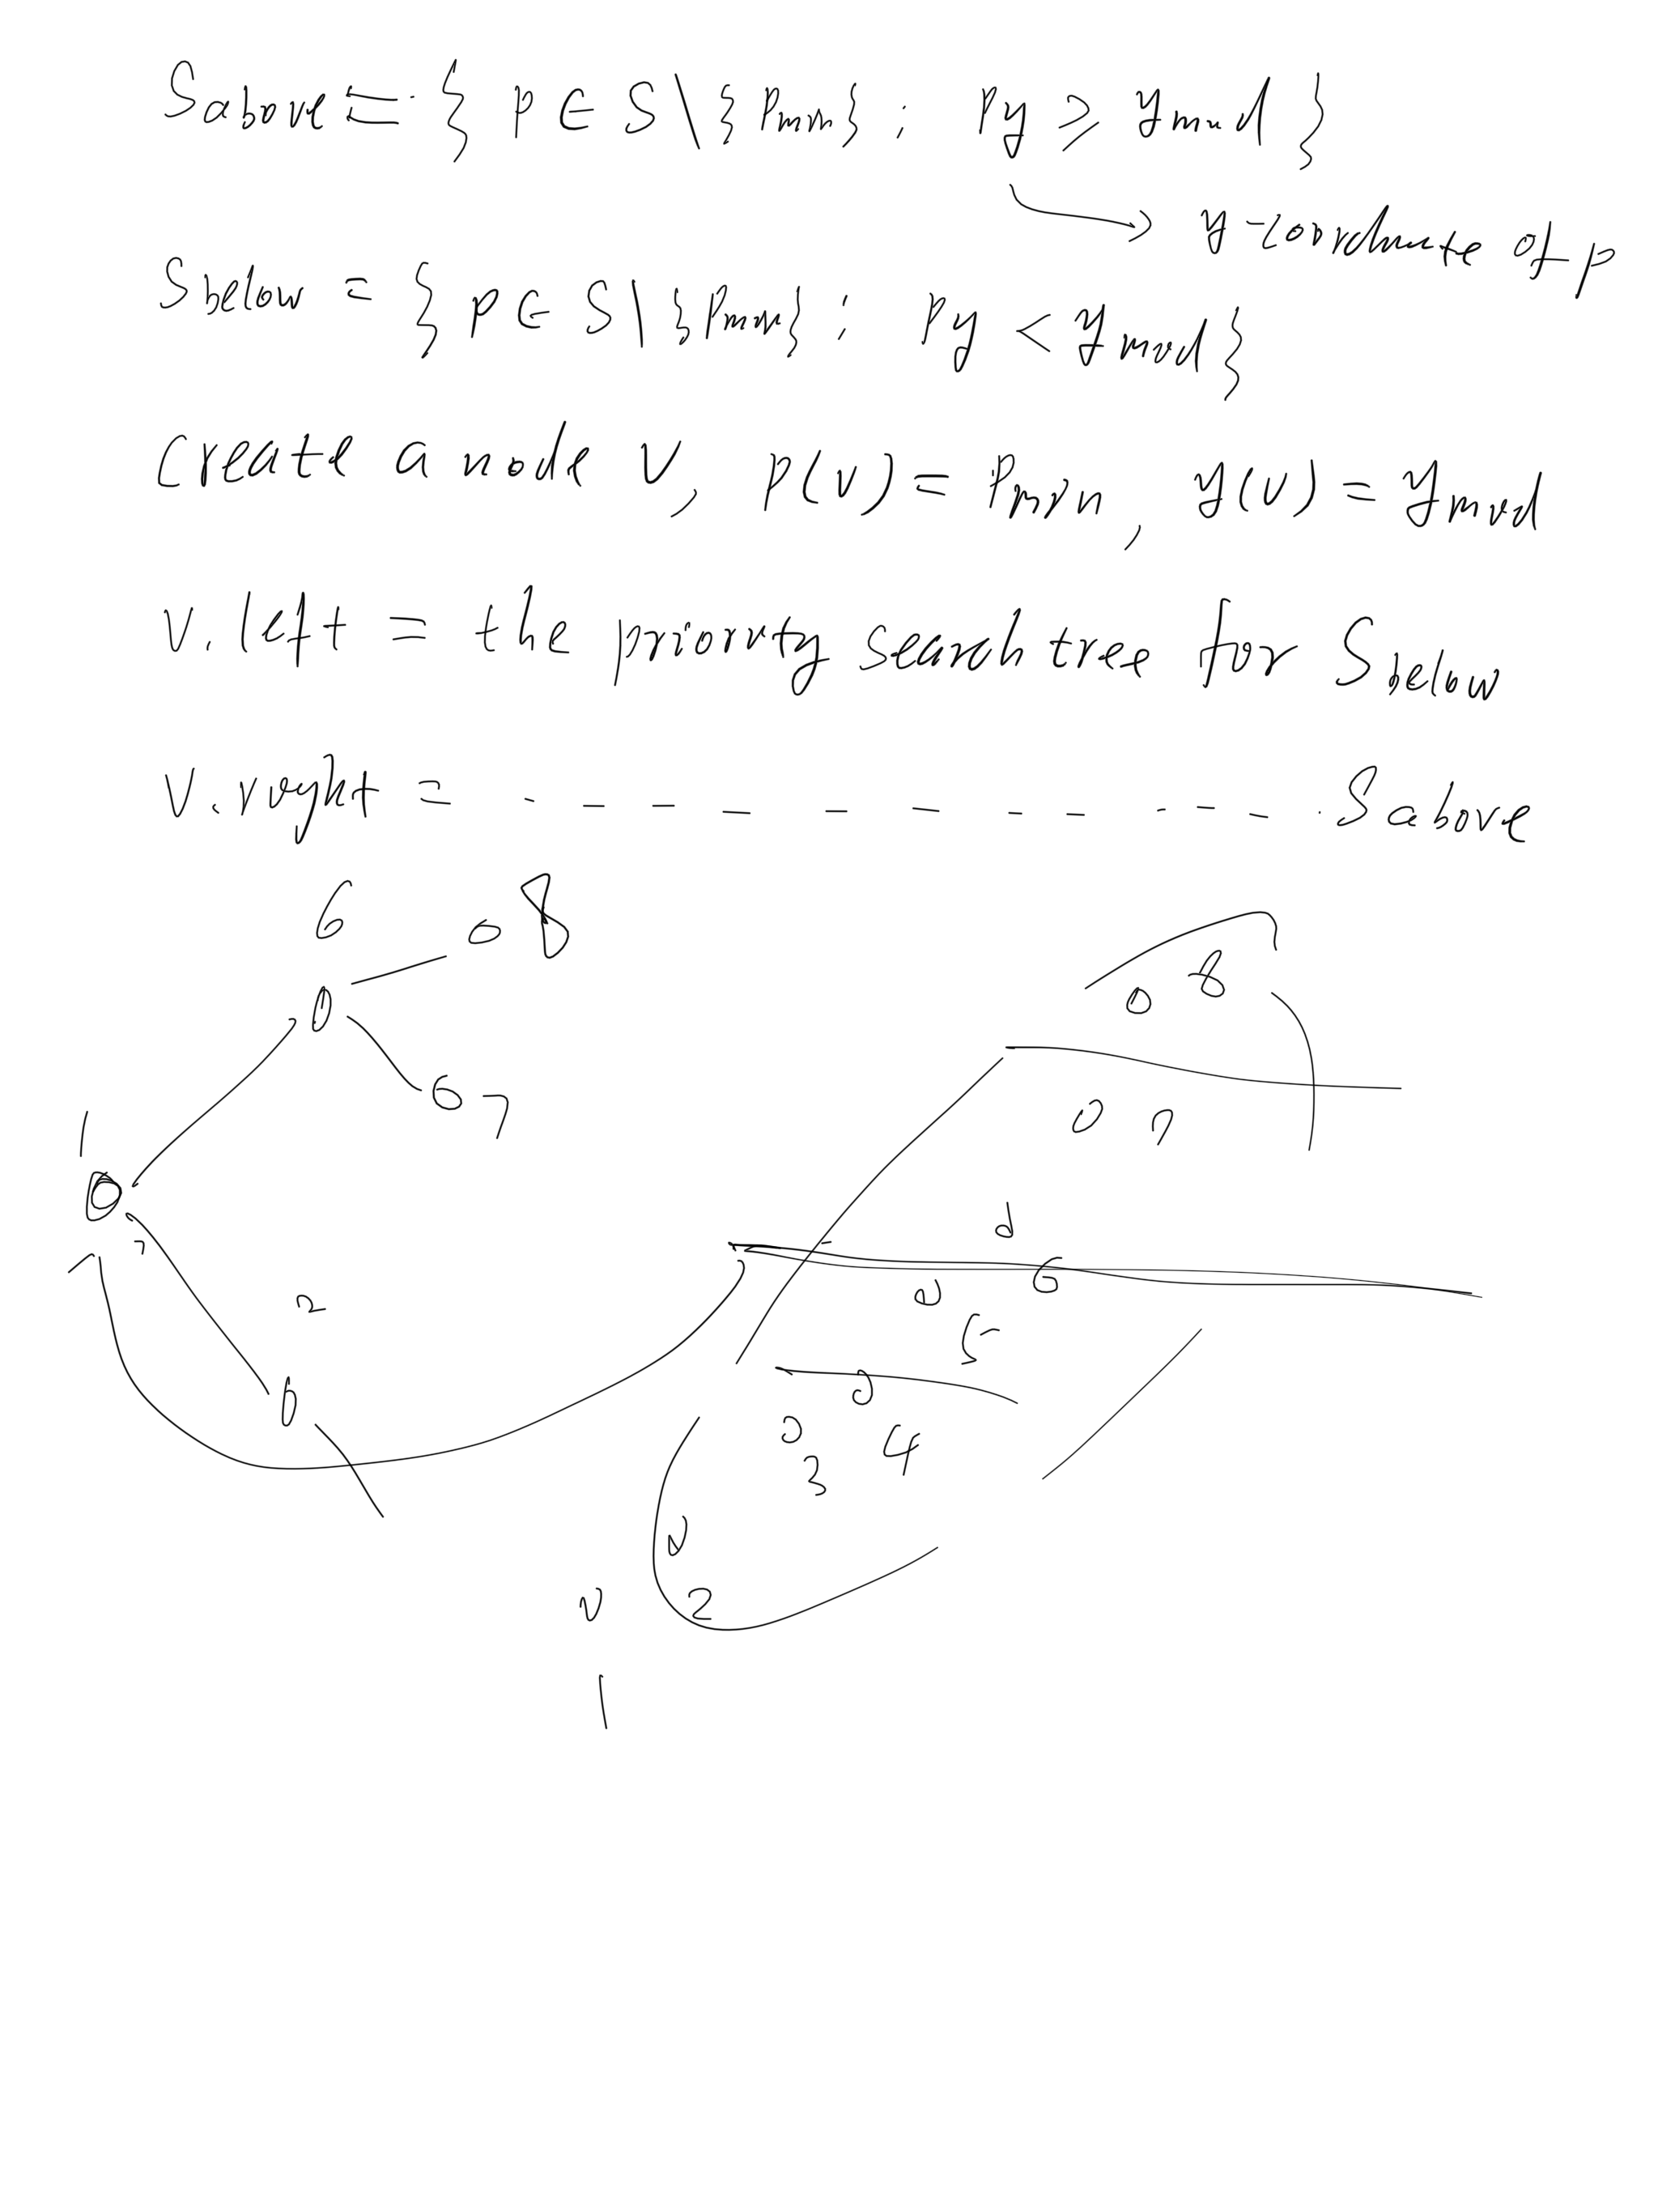 S above = { p ∈ S \ {Pmin} : Py ≥ ymid }
→ y-coordinate of p
S below = { p ∈ S \ {Pmin} : Py < ymid }
create a node v, p(v) = Pmin, y(v) = ymid
v.left = the priority search tree for S below
v.right = - - - - - - - - - - - - S above
6
8
8
7
1
7
6
2
5
4
3
2
1